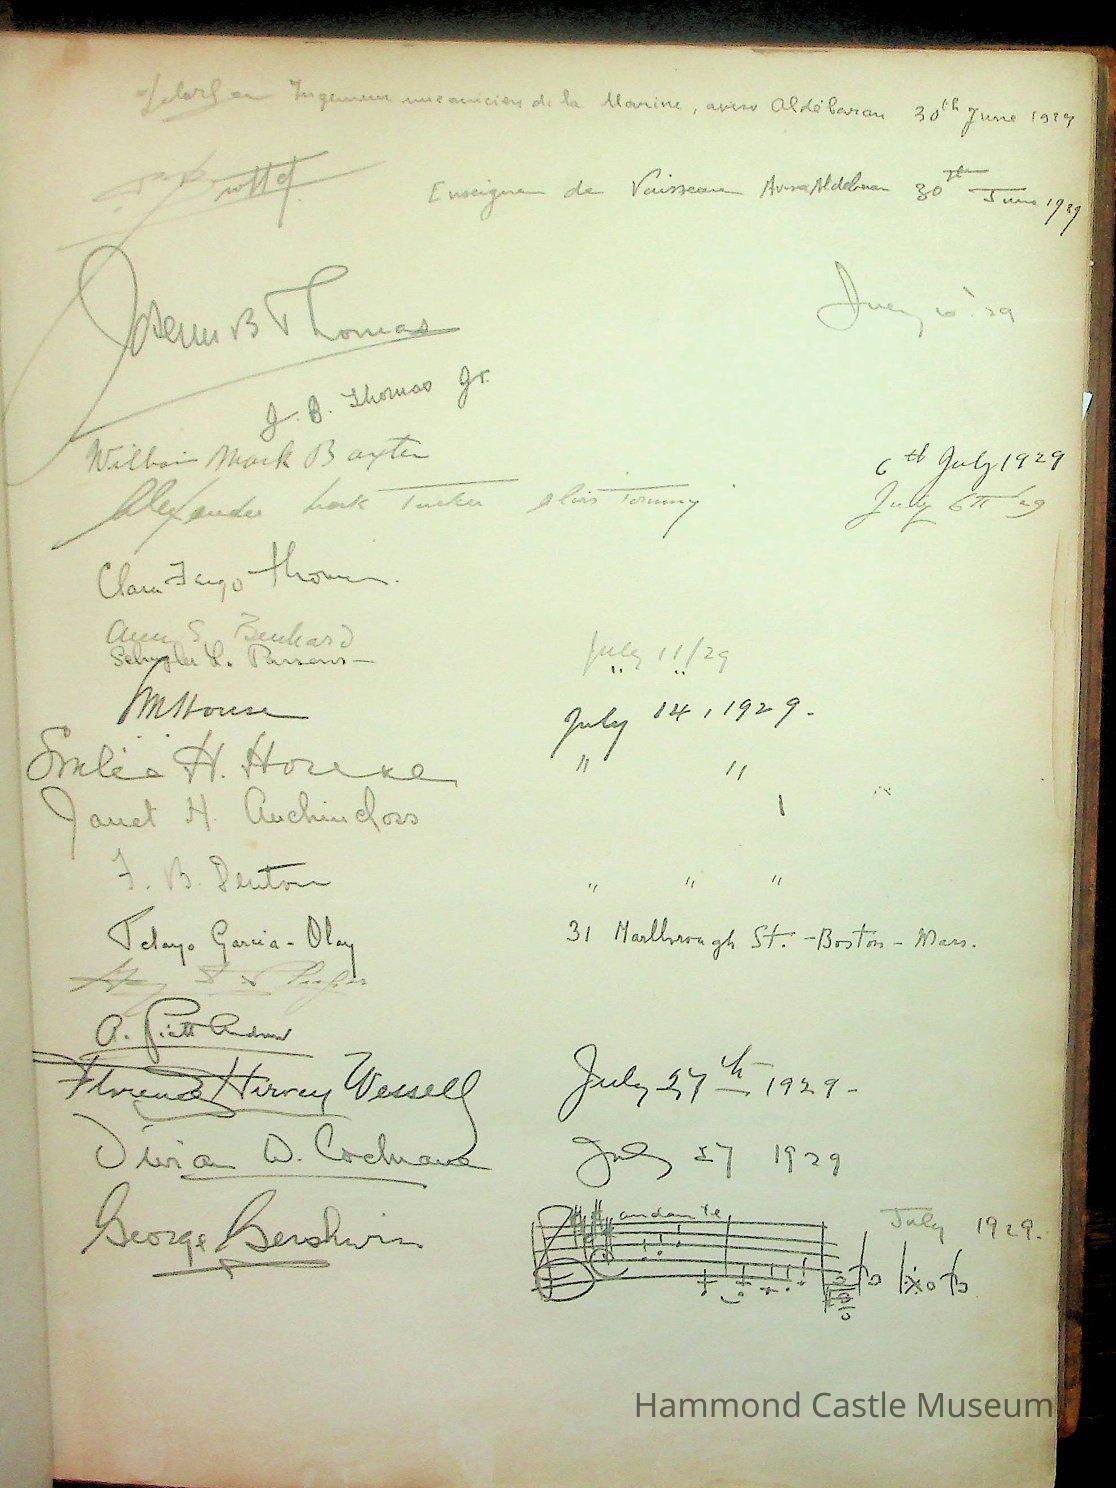 Ingenieur mecanicien de la Marine, aviso Aldébaran 30th June 1929
Enseigne de Vaisseau Aviso Aldebaran 30th June 1929
Joseph B Thomas July 6 '29
J. B. Thomas Jr.
William Mark Baxter 6th July 1929
Alexander Tucker alias Tommy July 6th 29
Clara Fargo Thomas.
Ann S. Benkard July 11/29
Schuyler L. Parsons " "
July 14, 1929.
Emlie H. " "
Janet H. Auchincloss
F. B. Denton " " "
Telayo Garcia-Olay 31 Marlborough St. - Boston - Mass.
A. Piatt Andrew
Florence Hervey Wessell July 27th 1929-
Vivian W. Cochrane July 27 1929
George Gershwin andante July 1929.
Hammond Castle Museum